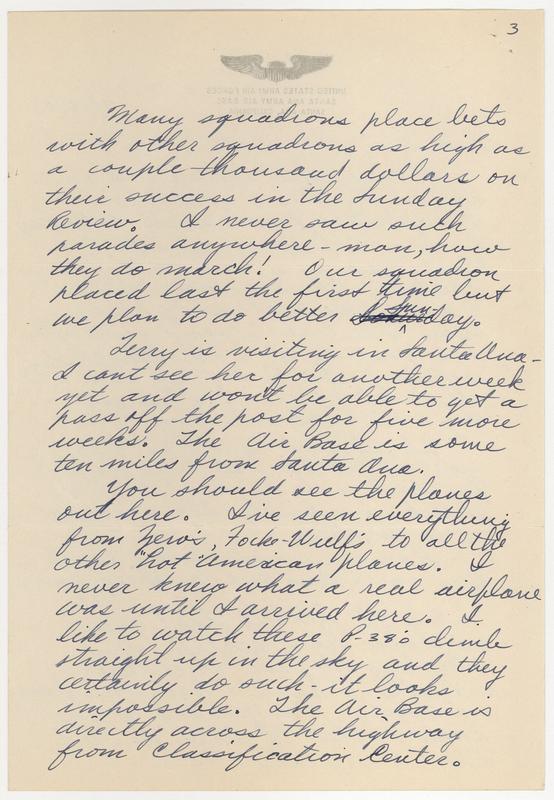 3
UNITED STATES ARMY AIR FORCES
SANTA ANA ARMY AIR BASE
Many squadrons place bets
with other squadrons as high as
a couple thousand dollars on
their success in the Sunday
Review. I never saw such
parades anywhere - man, how
they do march! Our squadron
placed last the first time but
we plan to do better Sunday.
Terry is visiting in Santa Ana -
I cant see her for another week
yet and won't be able to get a
pass off the post for five more
weeks. The Air Base is some
ten miles from Santa Ana.
You should see the planes
out here. I've seen everything
from Zero's, Focke-Wulf's to all the
other "hot" American planes. I
never knew what a real airplane
was until I arrived here. I
like to watch these P-38's climb
straight up in the sky and they
certainly do such - it looks
impossible. The Air Base is
directly across the highway
from Classification Center.